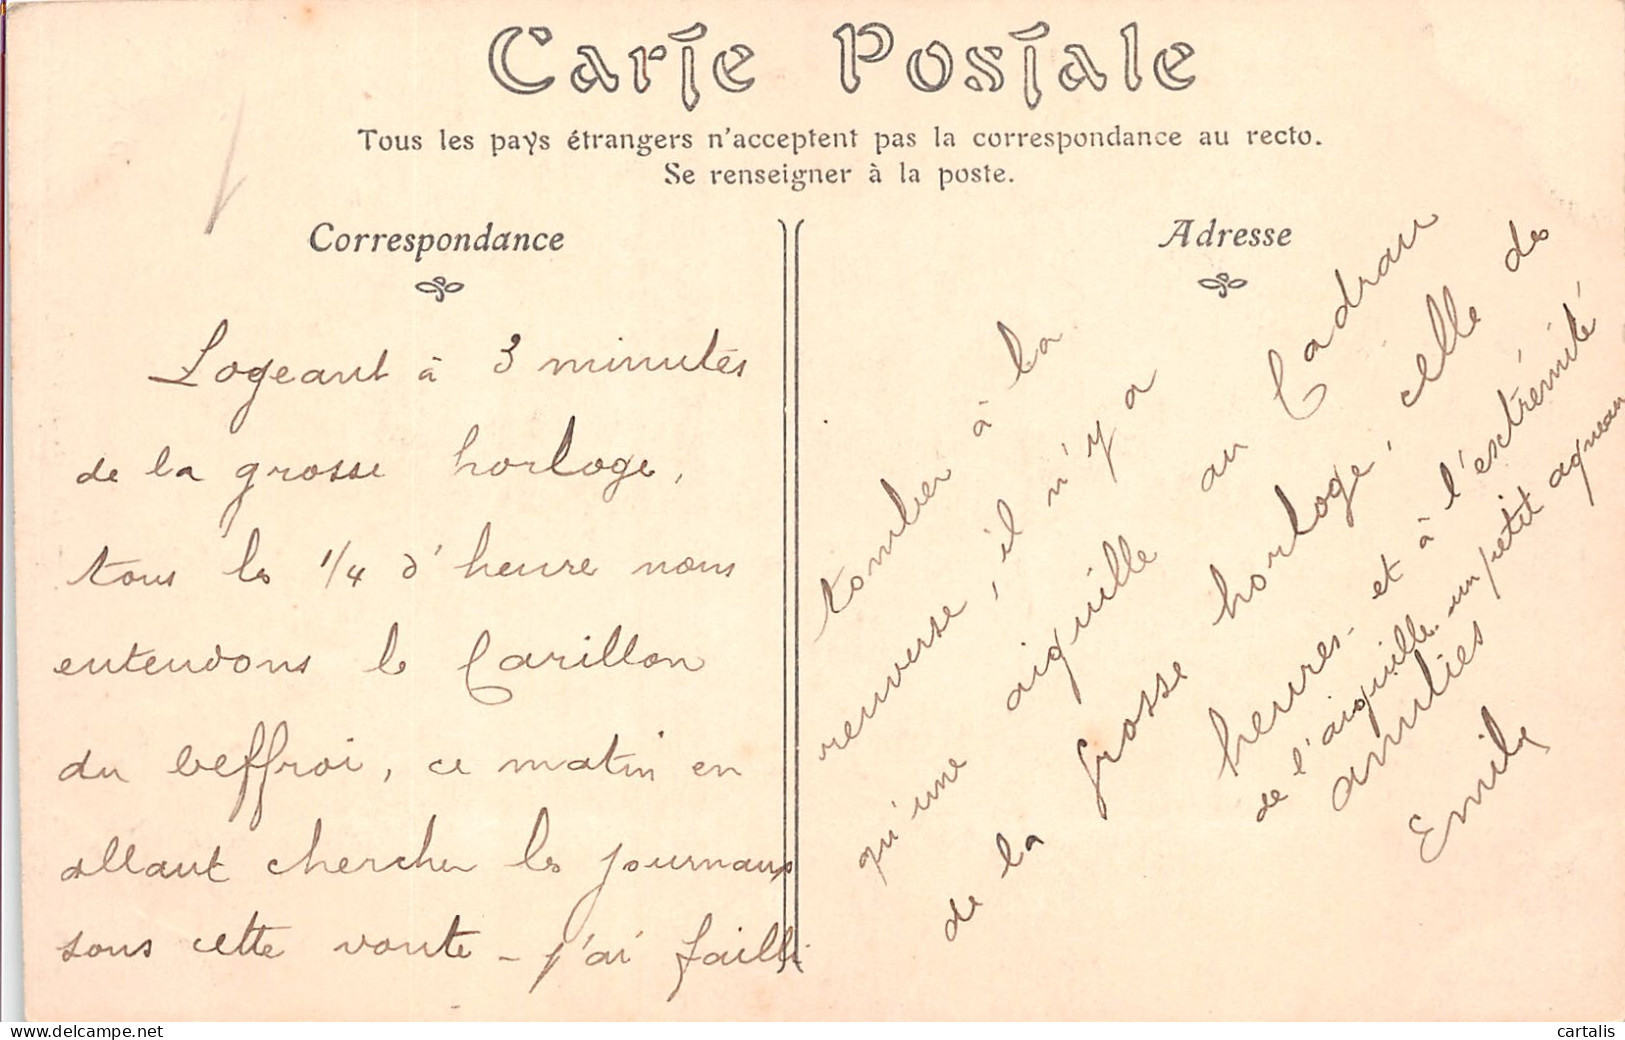 Carte Postale
Tous les pays étrangers n'acceptent pas la correspondance au recto.
Se renseigner à la poste.
Correspondance
Adresse
Logeant à 3 minutes
de la grosse horloge,
tous les 1/4 d'heure nous
entendons le Carillon
du beffroi, ce matin en
allant chercher les journaux
sous cette voute - j'ai failli
tomber à la
renverse, il n'y a
qu'une aiguille au Cadran
de la grosse horloge, celle des
heures - et à l'extrémité
de l'aiguille - un petit agneau
amitiés
Emile
cartalis
www.delcampe.net